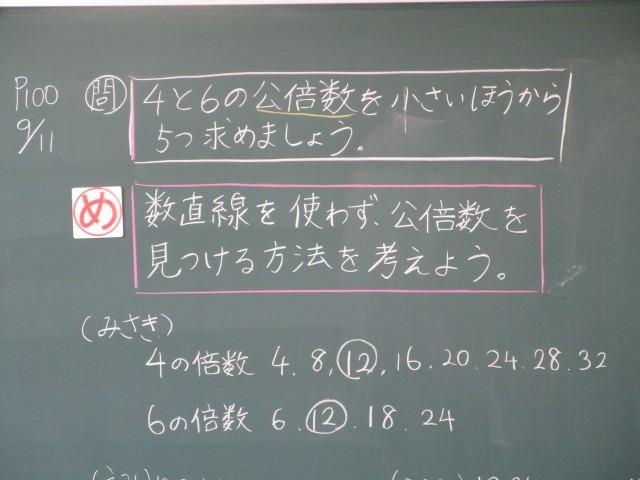 P100 問 4と6の公倍数を小さいほうから
9/11 5つ求めましょう。
め 数直線を使わず、公倍数を
見つける方法を考えよう。
(みさき)
4の倍数 4.8,12,16.20.24.28.32
6の倍数 6.12.18.24